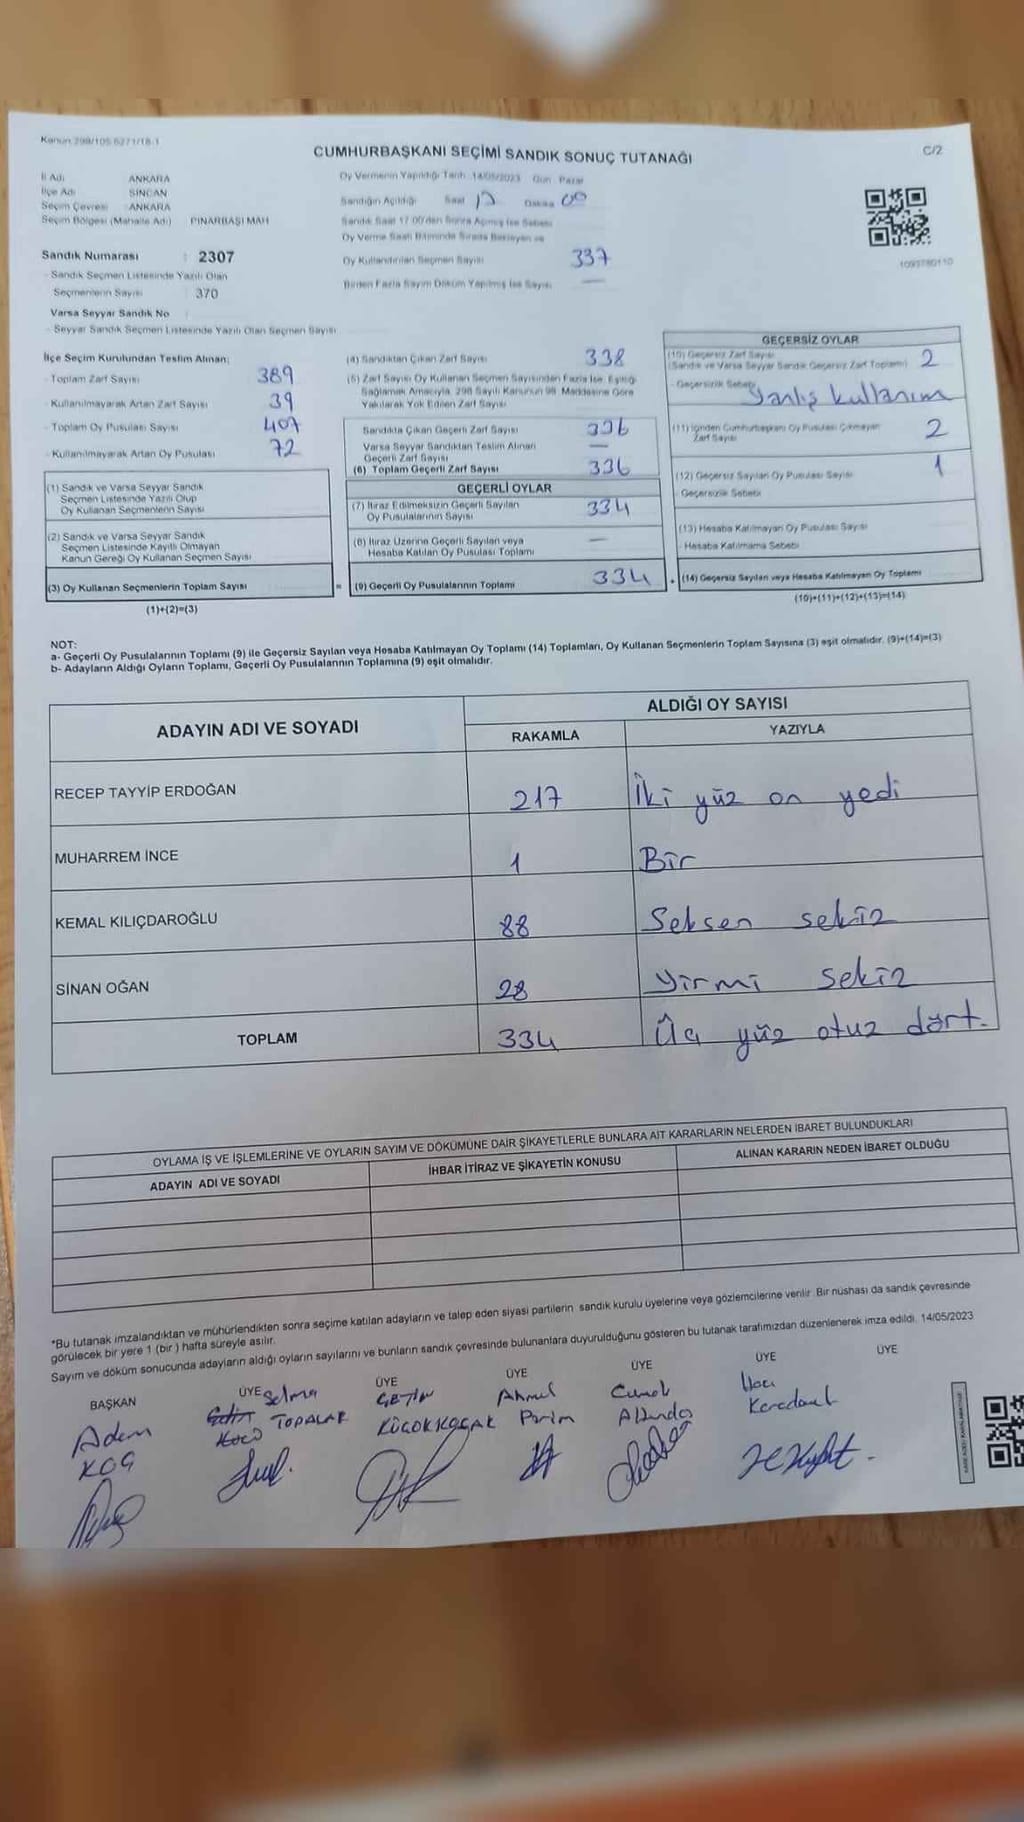 Kanun 298/105 6271/18-1
CUMHURBAŞKANI SEÇİMİ SANDIK SONUÇ TUTANAĞI
C/2
İl Adı ANKARA
İlçe Adı SİNCAN
Seçim Çevresi : ANKARA
Seçim Bölgesi (Mahalle Adı) PINARBAŞI MAH
Sandık Numarası : 2307
- Sandık Seçmen Listesinde Yazılı Olan
Seçmenlerin Sayısı : 370
Varsa Seyyar Sandık No
- Seyyar Sandık Seçmen Listesinde Yazılı Olan Seçmen Sayısı
Oy Vermenin Yapıldığı Tarih 14/05/2023 Gün Pazar
Sandığın Açıldığı Saat 17 Dakika 00
Sandık Saat 17.00'den Sonra Açılmış İse Sebebi
Oy Verme Saati Bitiminde Sırada Bekleyen ve
Oy Kullandırılan Seçmen Sayısı 337
Birden Fazla Sayım Döküm Yapılmış İse Sayısı —
1093780110
İlçe Seçim Kurulundan Teslim Alınan;
- Toplam Zarf Sayısı 389
- Kullanılmayarak Artan Zarf Sayısı 39
- Toplam Oy Pusulası Sayısı 407
- Kullanılmayarak Artan Oy Pusulası 72
(1) Sandık ve Varsa Seyyar Sandık
Seçmen Listesinde Yazılı Olup
Oy Kullanan Seçmenlerin Sayısı
(2) Sandık ve Varsa Seyyar Sandık
Seçmen Listesinde Kayıtlı Olmayan
Kanun Gereği Oy Kullanan Seçmen Sayısı
(3) Oy Kullanan Seçmenlerin Toplam Sayısı
(1)+(2)=(3)
=
(4) Sandıktan Çıkan Zarf Sayısı 338
(5) Zarf Sayısı Oy Kullanan Seçmen Sayısından Fazla İse, Eşitliği
Sağlamak Amacıyla, 298 Sayılı Kanunun 98. Maddesine Göre
Yakılarak Yok Edilen Zarf Sayısı
Sandıkta Çıkan Geçerli Zarf Sayısı 336
Varsa Seyyar Sandıktan Teslim Alınan
Geçerli Zarf Sayısı —
(6) Toplam Geçerli Zarf Sayısı 336
GEÇERLİ OYLAR
(7) İtiraz Edilmeksizin Geçerli Sayılan
Oy Pusulalarının Sayısı 334
(8) İtiraz Üzerine Geçerli Sayılan veya
Hesaba Katılan Oy Pusulası Toplamı —
(9) Geçerli Oy Pusulalarının Toplamı 334
+
GEÇERSİZ OYLAR
(10) Geçersiz Zarf Sayısı
(Sandık ve Varsa Seyyar Sandık Geçersiz Zarf Toplamı) 2
- Geçersizlik Sebebi Yanlış kullanım
(11) İçinden Cumhurbaşkanı Oy Pusulası Çıkmayan
Zarf Sayısı 2
(12) Geçersiz Sayılan Oy Pusulası Sayısı 1
- Geçersizlik Sebebi
(13) Hesaba Katılmayan Oy Pusulası Sayısı
- Hesaba Katılmama Sebebi
(14) Geçersiz Sayılan veya Hesaba Katılmayan Oy Toplamı
(10)+(11)+(12)+(13)=(14)
NOT:
a- Geçerli Oy Pusulalarının Toplamı (9) ile Geçersiz Sayılan veya Hesaba Katılmayan Oy Toplamı (14) Toplamları, Oy Kullanan Seçmenlerin Toplam Sayısına (3) eşit olmalıdır. (9)+(14)=(3)
b- Adayların Aldığı Oyların Toplamı, Geçerli Oy Pusulalarının Toplamına (9) eşit olmalıdır.
ADAYIN ADI VE SOYADI
ALDIĞI OY SAYISI
RAKAMLA YAZIYLA
RECEP TAYYİP ERDOĞAN 217 İki yüz on yedi
MUHARREM İNCE 1 Bir
KEMAL KILIÇDAROĞLU 88 Seksen sekiz
SİNAN OĞAN 28 Yirmi sekiz
TOPLAM 334 Üç yüz otuz dört.
OYLAMA İŞ VE İŞLEMLERİNE VE OYLARIN SAYIM VE DÖKÜMÜNE DAİR ŞİKAYETLERLE BUNLARA AİT KARARLARIN NELERDEN İBARET BULUNDUKLARI
ADAYIN ADI VE SOYADI İHBAR İTİRAZ VE ŞİKAYETİN KONUSU ALINAN KARARIN NEDEN İBARET OLDUĞU
*Bu tutanak imzalandıktan ve mühürlendikten sonra seçime katılan adayların ve talep eden siyasi partilerin sandık kurulu üyelerine veya gözlemcilerine verilir. Bir nüshası da sandık çevresinde
görülecek bir yere 1 (bir) hafta süreyle asılır.
Sayım ve döküm sonucunda adayların aldığı oyların sayılarını ve bunların sandık çevresinde bulunanlara duyurulduğunu gösteren bu tutanak tarafımızdan düzenlenerek imza edildi. 14/05/2023
BAŞKAN ÜYE ÜYE ÜYE ÜYE ÜYE ÜYE
Adem
KOÇ
Selma
TOPALAR
ÇETİN
KÜÇÜKKOÇAK
Ahmet
Cumali
Hacı
Karadavut